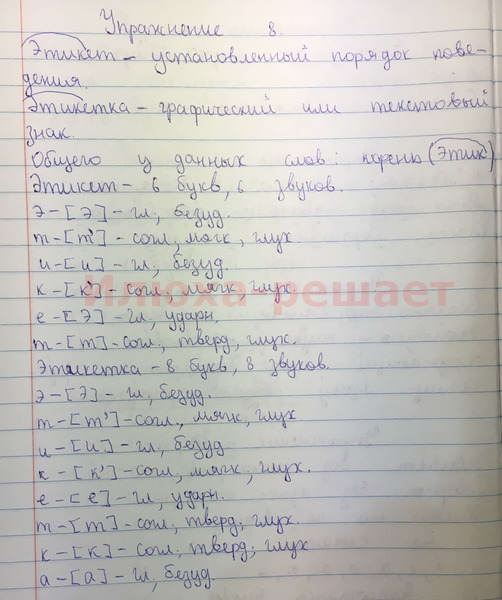 Упражнение 8.
Этикет – установленный порядок пове-
дения.
Этикетка – графический или текстовый
знак.
Общего у данных слов: корень (Этик)
Этикет – 6 букв, 6 звуков.
э – [э] – гл, безуд.
т – [т'] – согл, мягк, глух.
и – [и] – гл, безуд.
к – [к'] – согл, мягк, глух.
е – [э] – гл, ударн.
т – [т] – согл, тверд, глух.
Илюха-решает
Этикетка – 8 букв, 8 звуков.
э – [э] – гл, безуд.
т – [т'] – согл, мягк, глух
и – [и] – гл, безуд
к – [к'] – согл, мягк, глух.
е – [е] – гл, ударн.
т – [т] – согл, тверд; глух.
к – [к] – согл; тверд; глух
а – [а] – гл, безуд.